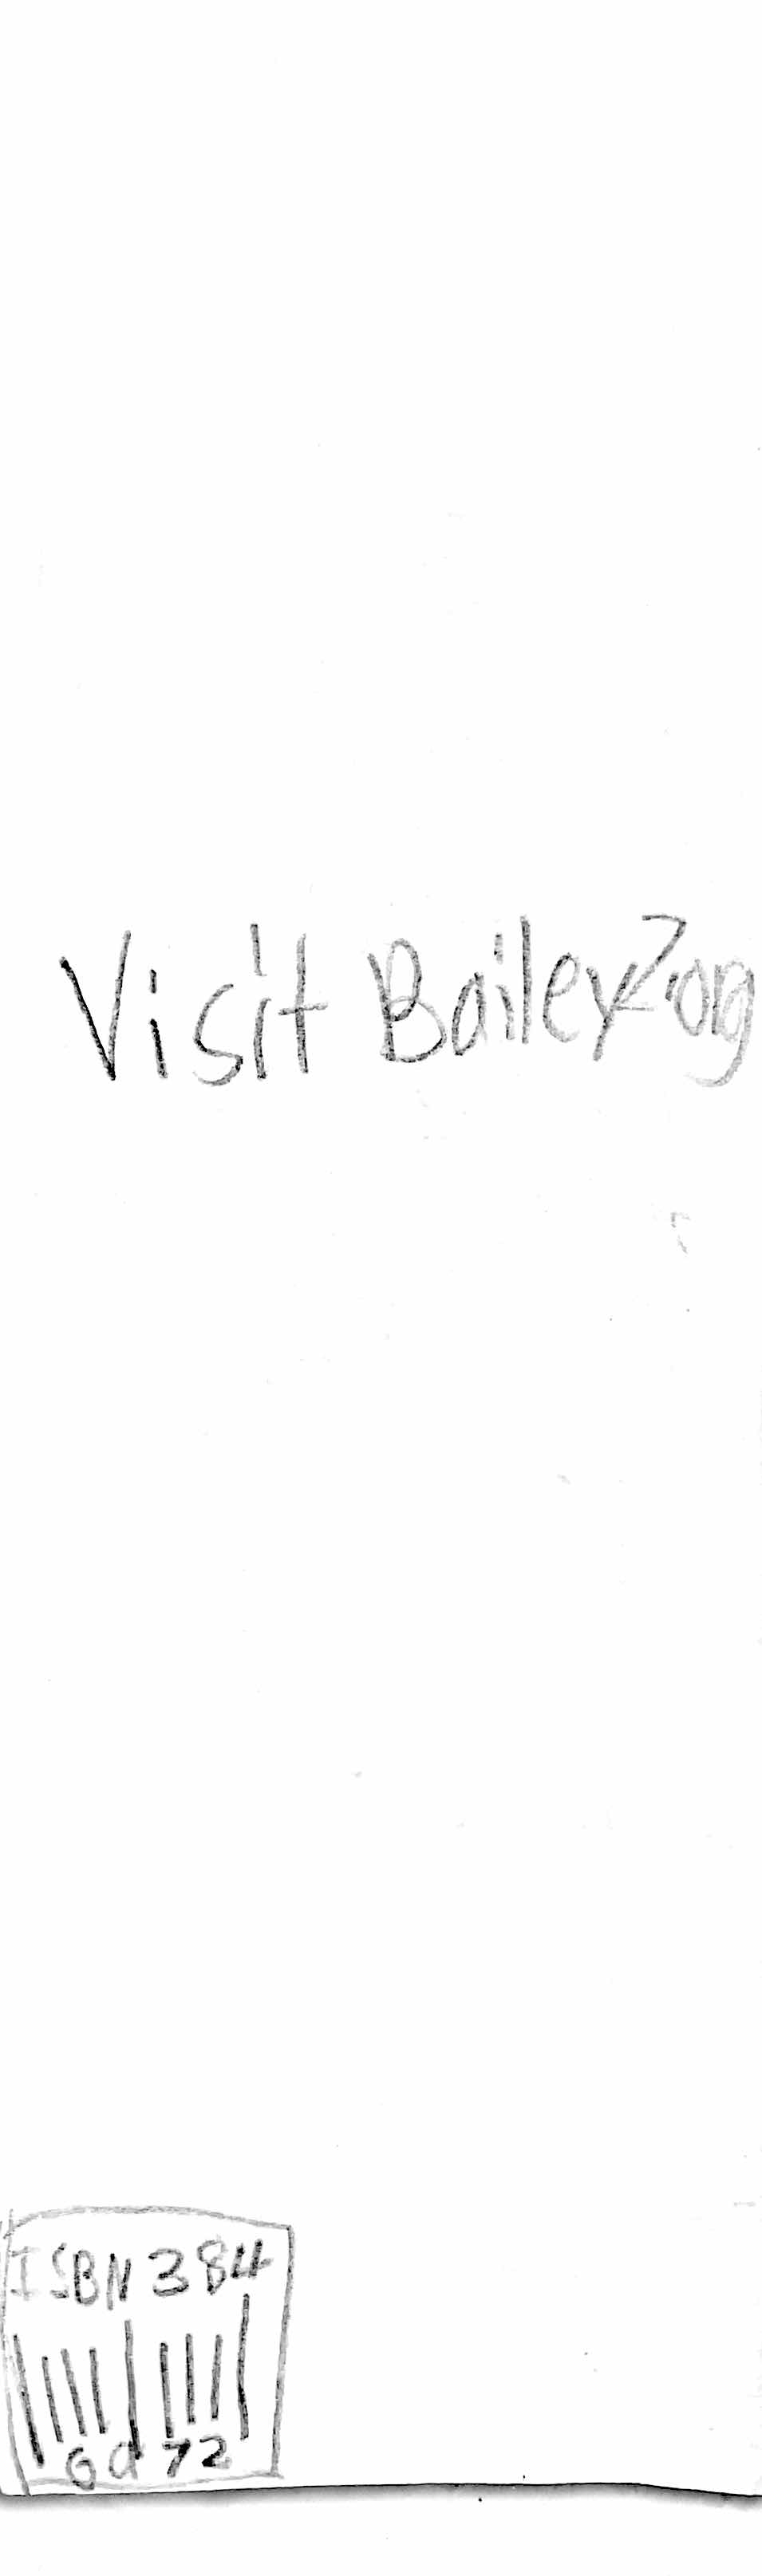 Visit BaileyZ.org
ISBN 384
6972